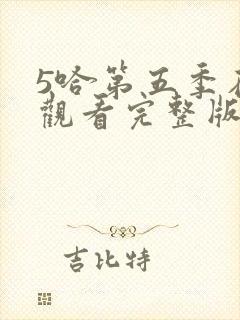 5哈第五季在
觀看完整版
吉比特